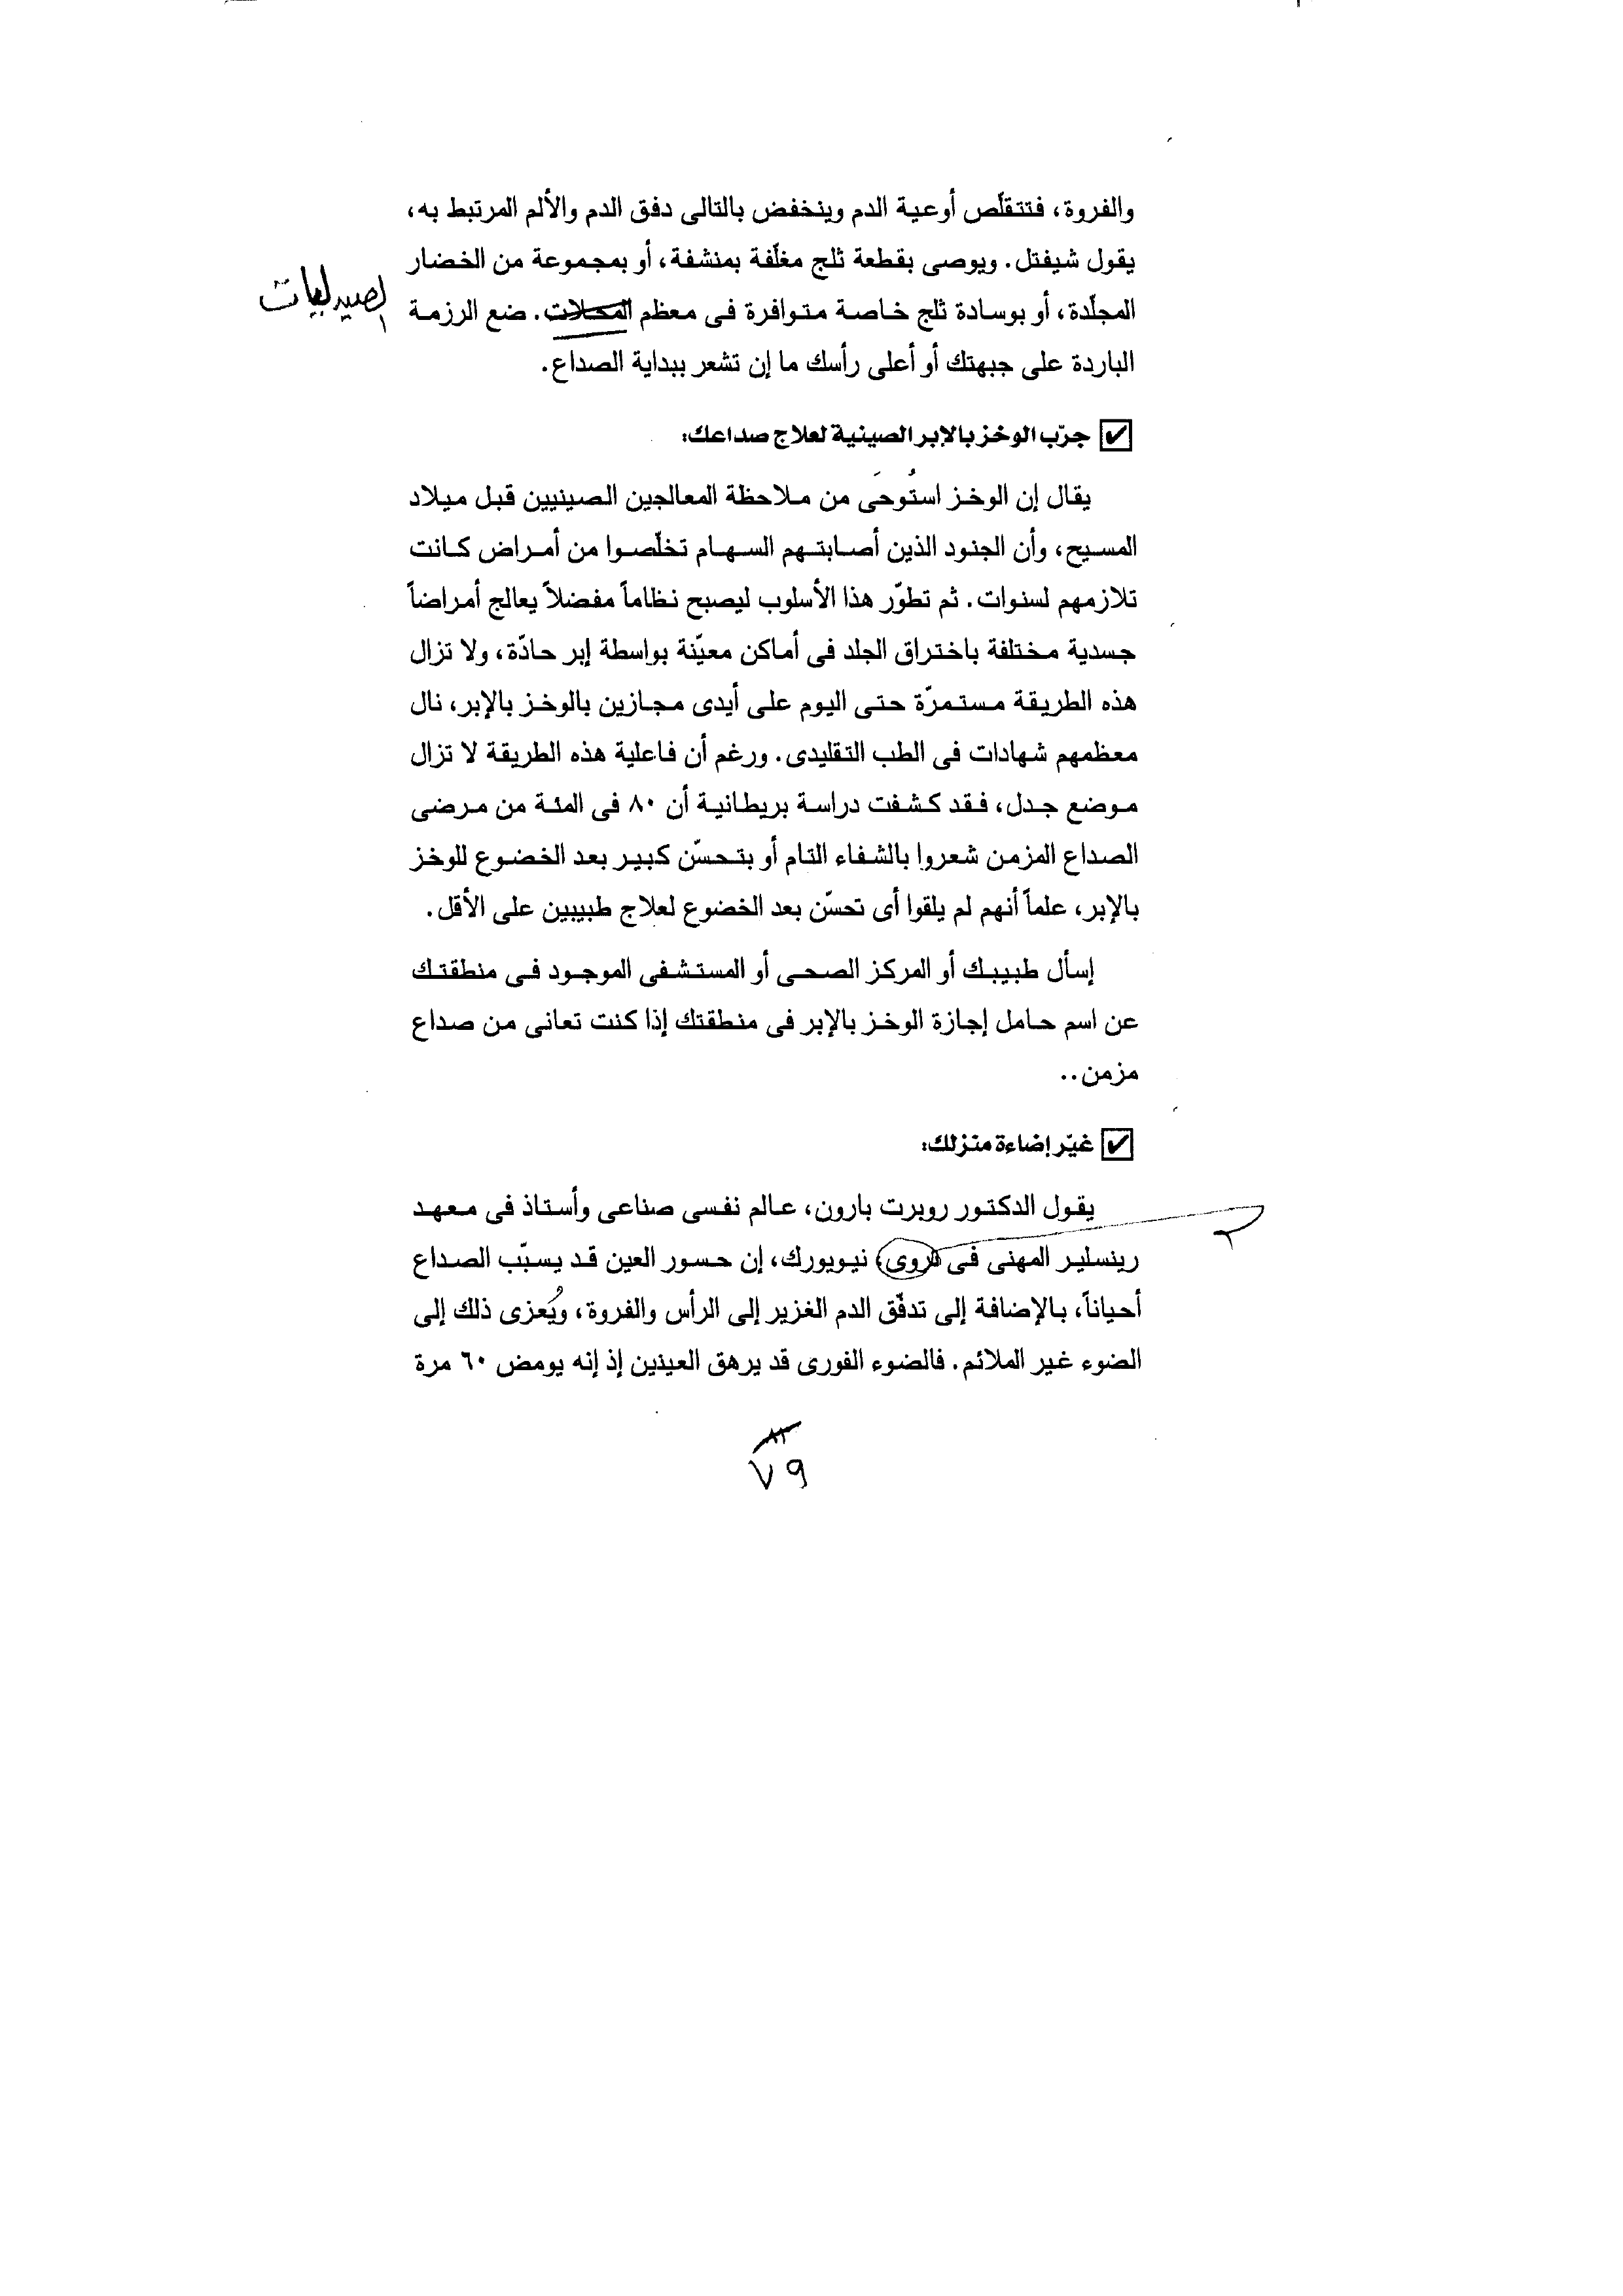 والفروة، فتتقلّص أوعية الدم وينخفض بالتالى دفق الدم والألم المرتبط به،
يقول شيفتل. ويوصى بقطعة ثلج مغلّفة بمنشفة، أو بمجموعة من الخضار
المجلّدة، أو بوسادة ثلج خاصة متوافرة فى معظم المحلات. ضع الرزمة
الصيدليات
الباردة على جبهتك أو أعلى رأسك ما إن تشعر ببداية الصداع.
☑ جرّب الوخز بالإبر الصينية لعلاج صداعك:
يقال إن الوخز استُوحَى من ملاحظة المعالجين الصينيين قبل ميلاد
المسيح، وأن الجنود الذين أصابتهم السهام تخلّصوا من أمراض كانت
تلازمهم لسنوات. ثم تطوّر هذا الأسلوب ليصبح نظاماً مفضلاً يعالج أمراضاً
جسدية مختلفة باختراق الجلد فى أماكن معيّنة بواسطة إبر حادّة، ولا تزال
هذه الطريقة مستمرّة حتى اليوم على أيدى مجازين بالوخز بالإبر، نال
معظمهم شهادات فى الطب التقليدى. ورغم أن فاعلية هذه الطريقة لا تزال
موضع جدل، فقد كشفت دراسة بريطانية أن ٨٠ فى المئة من مرضى
الصداع المزمن شعروا بالشفاء التام أو بتحسّن كبير بعد الخضوع للوخز
بالإبر، علماً أنهم لم يلقوا أى تحسّن بعد الخضوع لعلاج طبيبين على الأقل.
إسأل طبيبك أو المركز الصحى أو المستشفى الموجود فى منطقتك
عن اسم حامل إجازة الوخز بالإبر فى منطقتك إذا كنت تعانى من صداع
مزمن..
☑ غيّر إضاءة منزلك:
يقول الدكتور روبرت بارون، عالم نفسى صناعى وأستاذ فى معهد
رينسلير المهنى فى تروى، نيويورك، إن حسور العين قد يسبّب الصداع
أحياناً، بالإضافة إلى تدفّق الدم الغزير إلى الرأس والفروة، ويُعزى ذلك إلى
الضوء غير الملائم. فالضوء الفورى قد يرهق العينين إذ إنه يومض ٦٠ مرة
٧٩